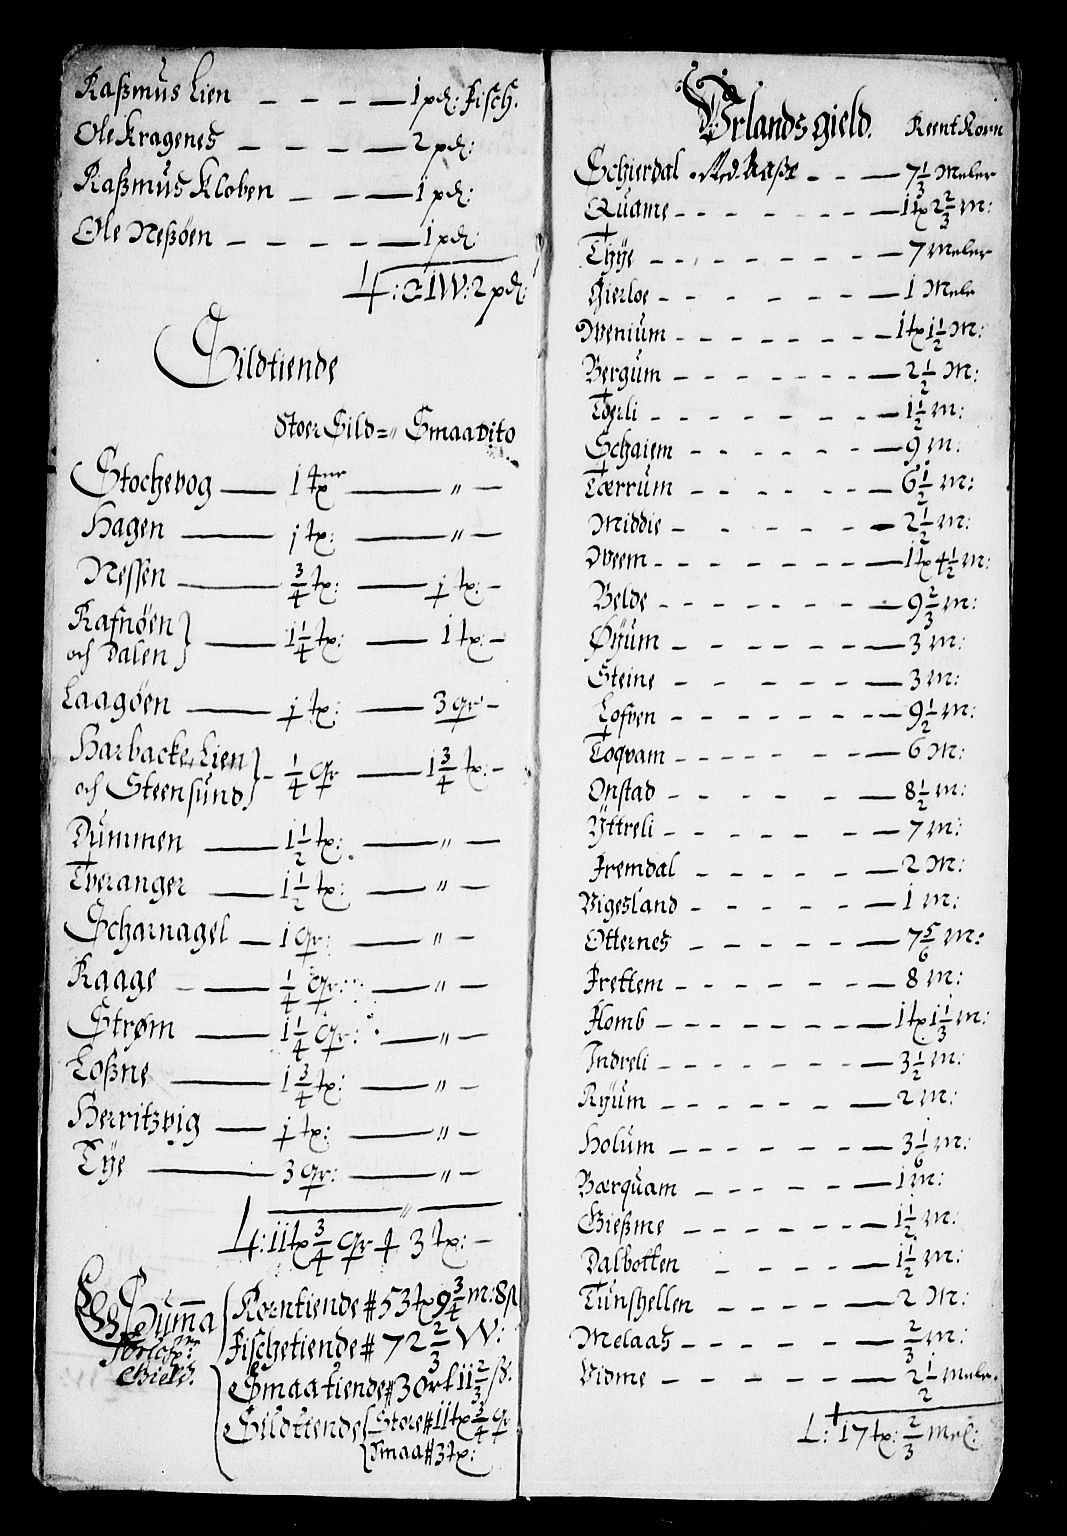 Raßmus Lien — 1 pd: Fisch.
Ole Kragenes — 2 pd:
Raßmus Kloben — 1 pd:
Ole Neßøen — 1 pd:
L: 21 W: 2 pd:
Sildtiende
Stoer Sild =" Smaa Dito
Stochevog — 1 tx — " —
Hagen — 1 tx: — " —
Nessen — 3/4 tx: — 1 tx: —
Rafnøen
och Dalen } — 1 1/4 tx: — 1 tx: —
Laagøen — 1 tx: — 3 qr —
Harbacke, Lien
och Steensund } 1/4 qr — 1 3/4 tx: —
Dummen — 1 1/2 tx: — " —
Tveranger — 1 1/2 tx: — " —
Scharnagel — 1 qr: — " —
Raage — 1/4 qr: — " —
Strøm — 1 1/4 qr: — " —
Loßne — 1 3/4 tx: — " —
Herritzvig — 1 tx: — " —
Tÿe — 3 qr: — " —
L: 11 tx 3/4 qr 3 tx: —
Suma Korntiende # 53 tx 9 3/4 m: 8
Fischetiende # 72 2/3 W:
Gield. Smaatiende # 3 ort 11 2/3 ß.
Sildtiende { Store # 11 tx 3/4 qr
Smaa # 3 tx:
Urlands gield. Reent Korn
Schierdal Aaße — 7 1/3 Meler
Quame — 1 tx 2 2/3 M:
Thÿe — 7 Meler
Gierloe — 1 Mele
Wenium — 1 tx 1 1/2 M:
Bergum — 2 1/2 M:
Toerli — 1 1/2 M:
Schaiem — 9 M:
Tærrum — 6 1/2 M:
Middie — 2 1/2 M:
Dveem — 1 tx 4 1/2 M:
Belde — 9 2/3 M:
Øÿum — 3 M:
Steine — 3 M:
Lofven — 9 1/2 M:
Toqvam — 6 M:
Onstad — 8 1/2 M:
Ÿttreli — 7 M:
Fremdal — 2 M:
Vigesland — 1 M:
Otternes — 7 5/6 M:
Frettem — 8 M:
Flomb — 1 tx 1 1/3 M:
Indreli — 3 1/2 M:
Rÿum — 2 M:
Holum — 3 1/6 M:
Bærquam — 1 M:
Gießme — 1 1/2 M:
Dalbotten — 1 1/2 M:
Tunshellen — 2 M:
Melaas — 2/3 M:
Vidme — 2 1/2 Meler.
L: 17 tx: 2/3 Mel: